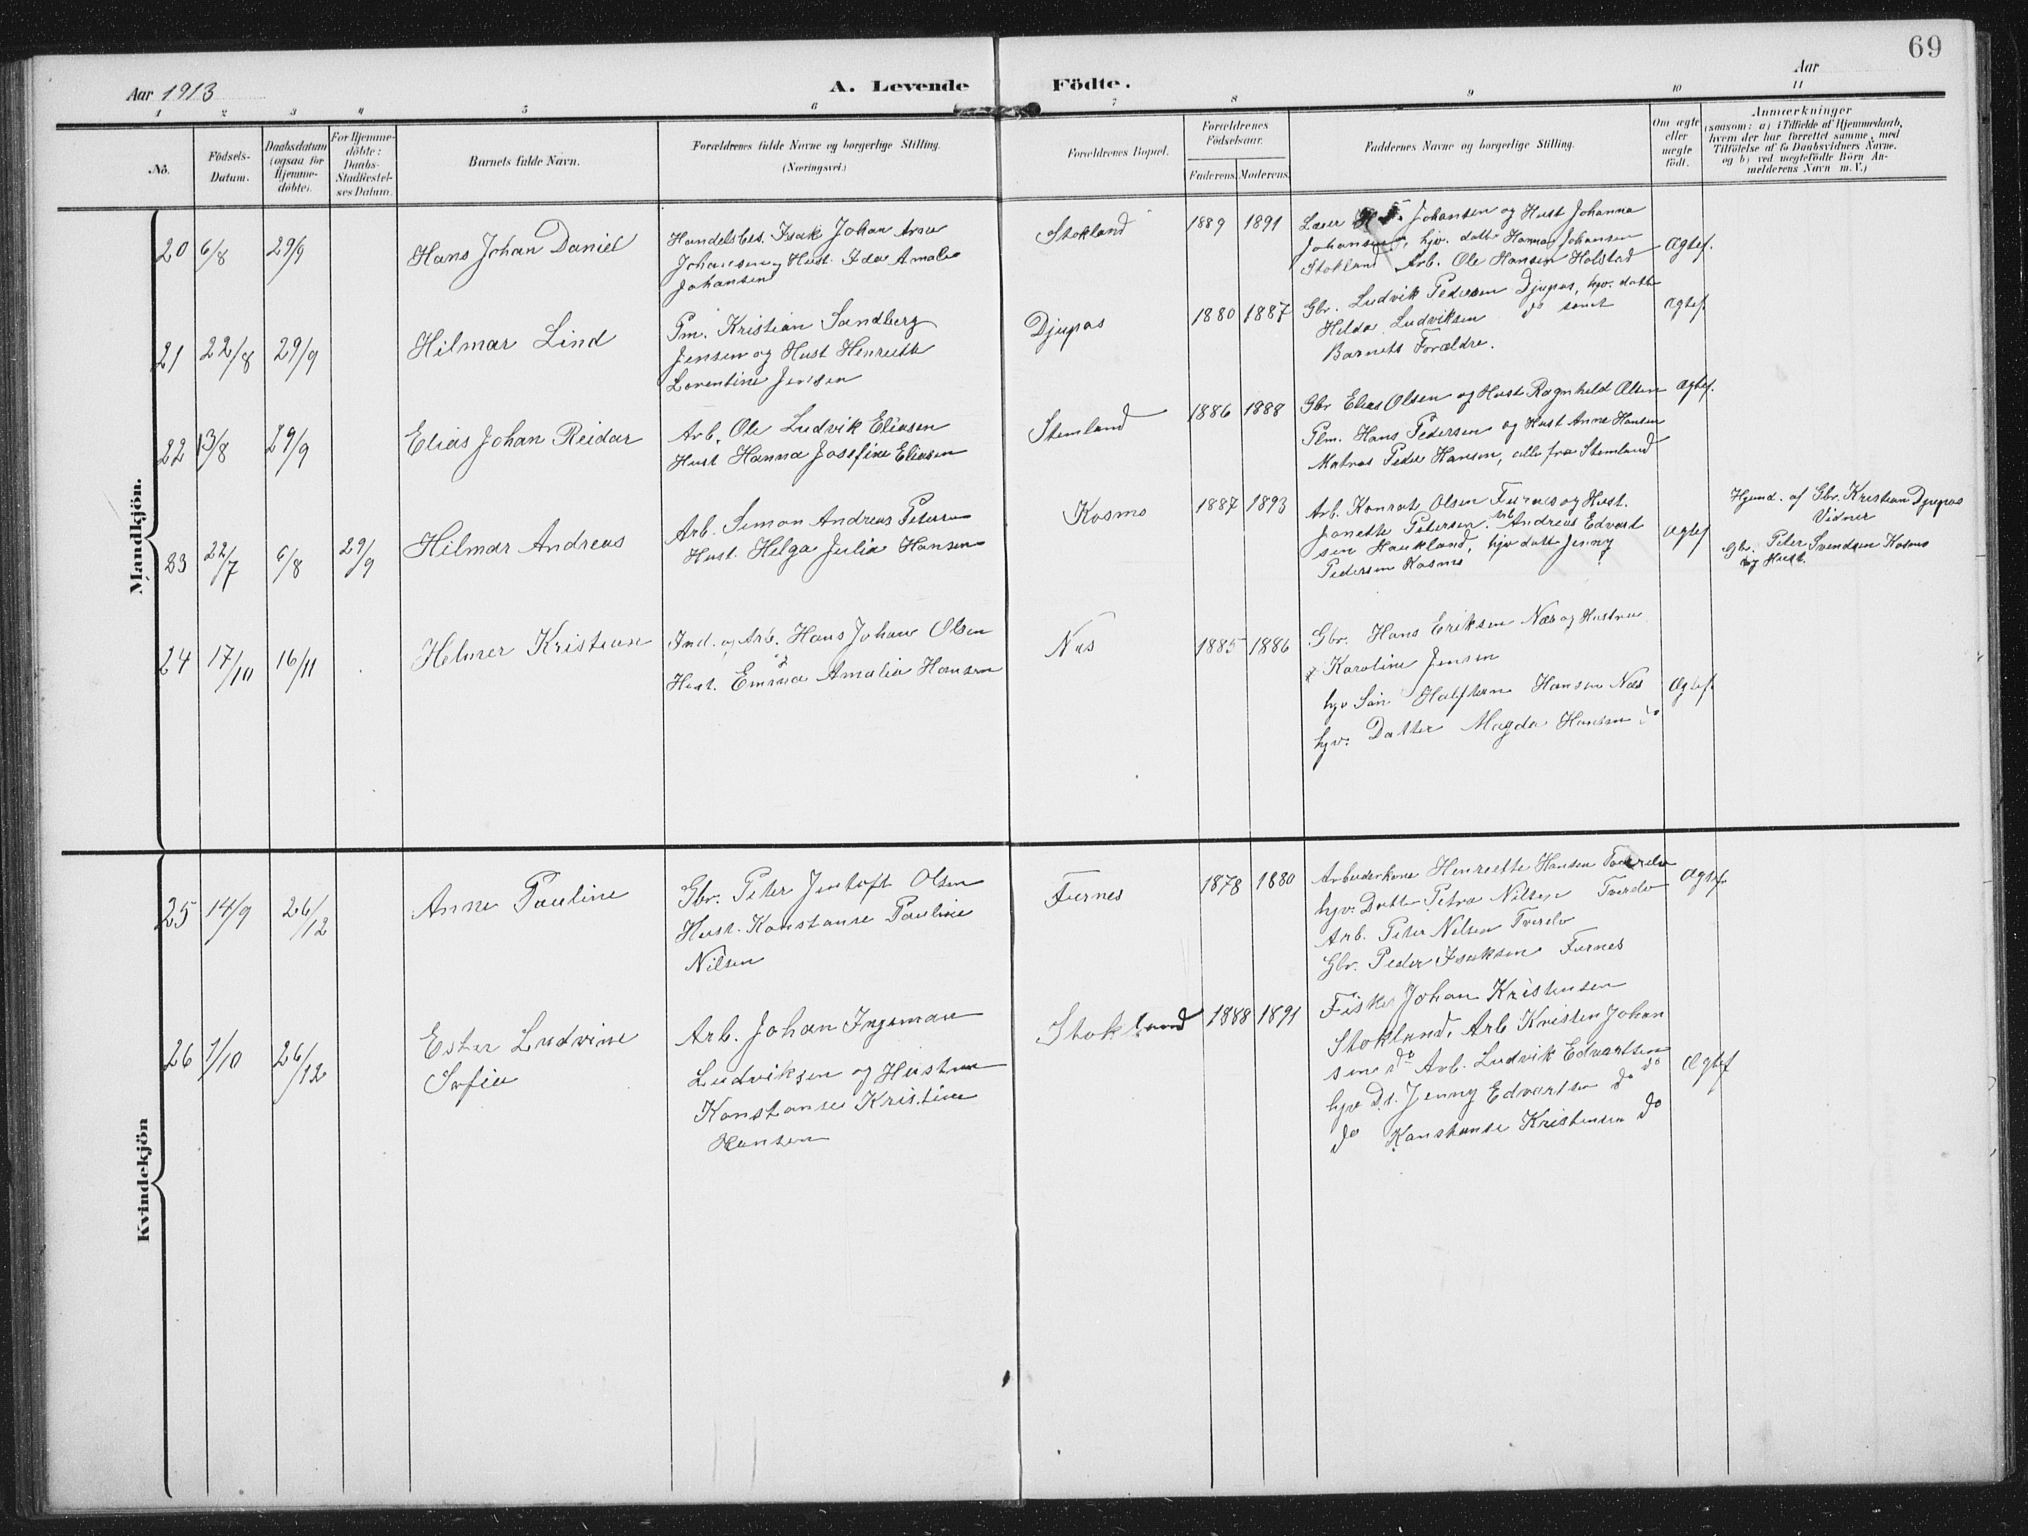 69
Aar 1913
A. Levende Födte.
Aar
1 2 3 4 5 6 7 8 9 10 11
No.
Födsels-Datum.
Daabsdatum (ogsaa for Hjemmedöbte).
For Hjemmedöbte: Daabs-Stadfæstelses Datum.
Barnets fulde Navn.
Forældrenes fulde Navne og borgerlige Stilling.
(Næringsvei.)
Forældrenes Bopæl.
Forældrenes Födselsaar.
Faderens. Moderens.
Faddernes Navne og borgerlige Stilling.
Om ægte eller uægte födt.
Anmærkninger
(saasom: a) i Tilfælde af Hjemmedaab,
hvem der har forrettet samme, med
Tilföielse af to Daabsvidners Navne.
og b) ved uægtefödte Börn An-
melderens Navn m. V.)
Mandkjön.
20 6/8 29/9
Hans Johan Daniel
Handelsbes. Isak Johan Arsu
Johansen og Hust. Ida Amalie
Johansen
Stokland
1889 1891
Johansen og Hust Johanna
Johansen, hjv. datt Hanna Johansen
Stokland Arb. Ole Hansen Holstad
Ægtef.
21 22/8 29/9
Hilmar Lind
Pm. Kristian Sandberg
Jensen og Hust Henriette
Lorentine Jensen
Djupos
1880 1887
Gbr. Ludvik Pedersen Djupos, hjv. datt
Helda Ludviksen do samt
Barnets Forældre.
Ægtef.
22 13/8 29/9
Elias Johan Reidar
Arb. Ole Ludvik Eliasen
Hust Hanna Josefine Eliasen
Stemland
1886 1888
Gbr Elias Olsen og Hust Ragnhild Olsen
Plm. Hans Pedersen og Hust Anne Hansen
Matros Peder Hansen, alle fra Stemland
Ægtef.
23 22/7 6/8 29/9
Hilmar Andreas
Arb. Simon Andreas Petersen
Hust Helga Julia Hansen
Kosmo
1887 1893
Arb. Konrat Olsen Furnes og Hust.
Janette Petersen. Arb Andreas Edvart
sen Haukland, hjv datt Jenny
Pedersen Kosmo
Ægtef
Hjemd. af Gbr. Kristian Djupos
Vidner
Gbr. Peter Svendsen Kosmo
og Hust.
24 17/10 16/11
Helmer Kristian
Ind. og Arb. Hans Johan Olsen
Hust. Emma Amalia Hansen
Nes
1885 1886
Gbr. Hans Eriksen Næs og Hustru
Karoline Jensen
hjv Søn Halfdan Hansen Næs
hjv. Datter Magda Hansen do
Ægtef.
Kvindekjön
25 14/9 26/12
Anne Pauline
Gbr. Peter Jentoft Olsen
Hust. Konstanse Pauline
Nilsen
Furnes
1878 1880
Arbeiderkone Henriette Hansen Tverelv
hjv. Datt Petra Nilsen Tverelv
Arb. Peter Nilsen Tverelv
Gbr. Peder Isaksen Furnes
Ægtef
26 1/10 26/12
Ester Ludvine
Sofie
Arb. Johan Ingeman
Ludviksen og Hustru
Konstanse Kristine
Hansen
Stokland
1888 1891
Fisker Johan Kristensen
Stokland, Arb Kristen Johan
sen do Arb. Ludvik Edvartsen
hjv Dt. Jenny Edvartsen do do
do Konstanse Kristensen do
Ægtef